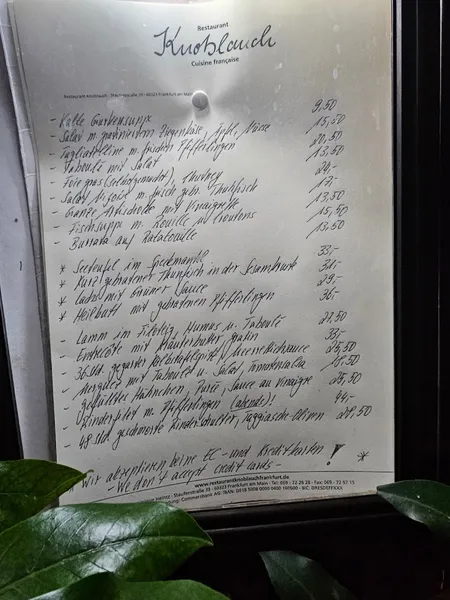 Restaurant
Knoblauch
Cuisine française
Restaurant Knoblauch - Staufenstraße 39 - 60323 Frankfurt am Main
- Kalte Gurkensuppe 9,50
- Salat m. gratiniertem Ziegenkäse, Äpfel, Nüsse 15,50
- Tagliatelline m. frischen Pfifferlingen 20,50
- Taboulé mit Salat 13,50
- Foie gras (selbstgemacht), Chutney 24,-
- Salat Niçoise m. frisch gebr. Thunfisch 17,-
- Ganze Artischocke mit Vinaigrette 13,50
- Fischsuppe m. Rouille und Croutons 15,50
- Burrata auf Ratatouille 13,50
* Seeteufel im Speckmantel 33,-
* Kurz gebratener Thunfisch in der Sesamkruste 31,-
* Lachs mit Grüner Sauce 29,-
* Heilbutt mit gebratenen Pfifferlingen 36,-
- Lamm im Filoteig, Humus u. Taboulé 27,50
- Entrecôte mit Kräuterbutter, Gratin 33,-
- 36 Std. gegarter Kalbstafelspitz, Meerrettichsauce 25,50
- Merguez mit Taboulé u. Salat,
- Gefülltes Hähnchen, Püré, Sauce au Vinaigre 25,50
- Rinderfilet m. Pfifferlingen (abends)! 44,-
- 48 Std. geschmorte Rinderschulter, Taggiasche-Oliven
* Wir akzeptieren keine EC- und Kreditkarten
- We don't accept credit cards - ! *
www.restaurantknoblauchfrankfurt.de
Staufenstraße 39 - 60323 Frankfurt am Main - Tel: 069 -
Commerzbank AG